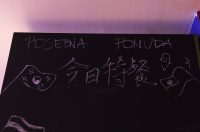 POSEBNA PONUDA
今日特餐